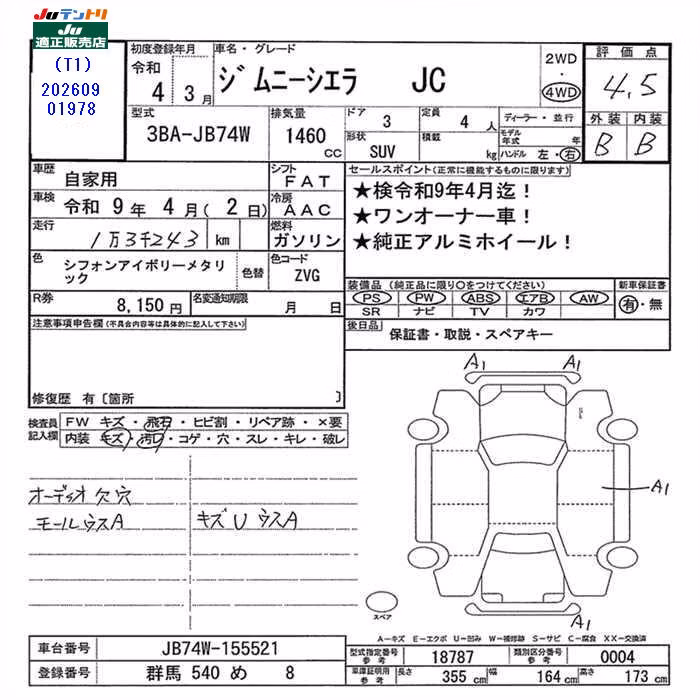 Juテントリ
Ju
適正販売店
(T1)
202609
01978
初度登録年月
令和
4 3月
車名・グレード
ジムニーシエラ JC
2WD
・
4WD
評価点
4.5
外装 内装
B B
型式
3BA-JB74W
排気量
1460
cc
ドア
3
形状
SUV
定員
4 人
積載
kg
ディーラー・並行
モデル年式 年
ハンドル 左・右
車歴
自家用
シフト
FAT
車検 令和 9年 4月( 2日)
冷房
AAC
走行
1万3千243 km
燃料
ガソリン
色
シフォンアイボリーメタリック
色替
色コード
ZVG
R券
8,150円
名変通知期限
月 日
セールスポイント(正常に機能するものに限ります)
★検令和9年4月迄!
★ワンオーナー車!
★純正アルミホイール!
装備品 (純正品に限り○をつけてください)
PS PW ABS エアB AW
SR ナビ TV カワ
新車保証書
有・無
後日品
保証書・取説・スペアキー
注意事項申告欄(不具合内容等は具体的に記載して下さい)
修復歴 有〔箇所 〕
検査員記入欄
FW キズ・飛石・ヒビ割・リペア跡・×要
内装 キズ・汚レ・コゲ・穴・スレ・キレ・破レ
オーディオ欠穴
モールウスA
キズUウスA
A1 A1
A1
A1
スペア
A-キズ E-エクボ U-凹み W-補修跡 S-サビ C-腐食 XX-交換済
車台番号 JB74W-155521
登録番号 群馬 540 め 8
型式指定番号
参考
18787
類別区分番号
参考
0004
車庫証明用
参考
長さ 355 cm 幅 164 cm 高さ 173 cm